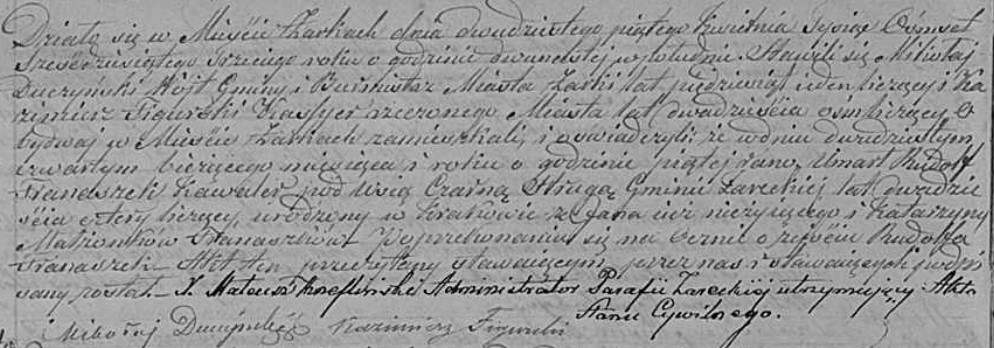 Działo się w Mieście Żarkach dnia dwudziestego piątego Kwietnia Tysiąc Ośmset
Sześćdziesiątego Trzeciego roku o godzinie dwunastej w południe. Stawili się Mikołaj
Duczyński Wójt Gminy i Burmistrz Miasta Żarki lat pięćdziesiąt ieden liczący i Ka
zimierz Figurski Kassyer rzeczonego Miasta lat dwadzieścia ośm liczący O
bydwaj w Mieście Żarkach zamieszkali, i oświadczyli; że w dniu dwudziestym
czwartym bieżącego miesiąca i roku o godzinie piątej rano, Umarł Rudolf
Franaszek Kawaler pod Wsią Czarną Strugą Gminie Żareckiej lat dwadzie
ścia cztery liczący, urodzony w Krakowie z Jana już nieżyjącego i Katarzyny
Małżonków Franaszków. Po przekonaniu się na Oernie o zejściu Rudolfa
Franaszek Akt ten przeczytany stawaiącym, przez nas i stawaiących podpi
sany został. X. Mateusz Administrator Parafii Żareckiej utrzymujący Akta
Stanu Cywilnego.
Mikołaj Duczyński Kazimierz Figurski